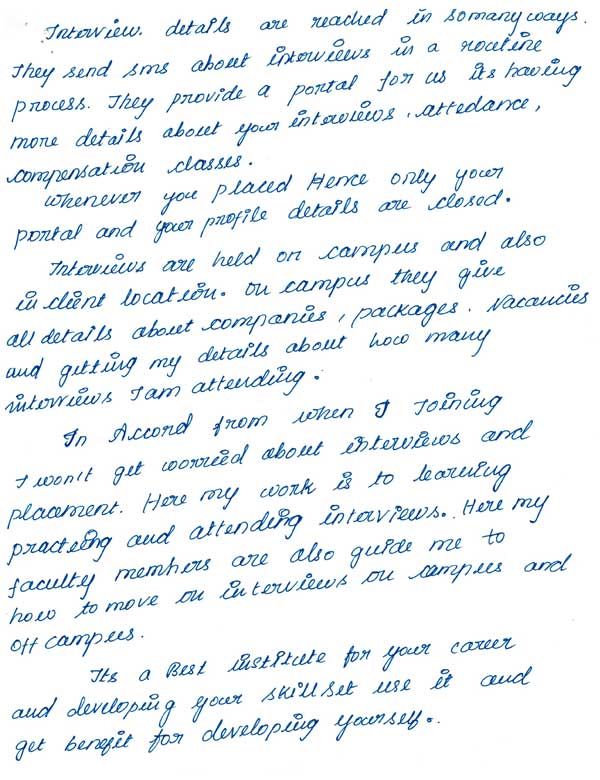 Interview. details are reached in somanyways.
They send sms about interviews in a routine
process. They provide a portal for us its having
more details about your interviews, attedance,
compensation classes.
whenever you placed Hence only your
portal and your profile details are closed.
Interviews are held on campus and also
in client location. On campus they give
all details about companies, packages. Vacancies
and getting my details about how many
interviews I am attending.
In Accord from when I Joining
I won't get worried about interviews and
placement. Here my work is to learning
practeing and attending interviews. Here my
faculty members are also guide me to
how to move on interviews on campus and
off campus.
Its a Best institute for your career
and developing your skillset use it and
get benefit for developing yourself..